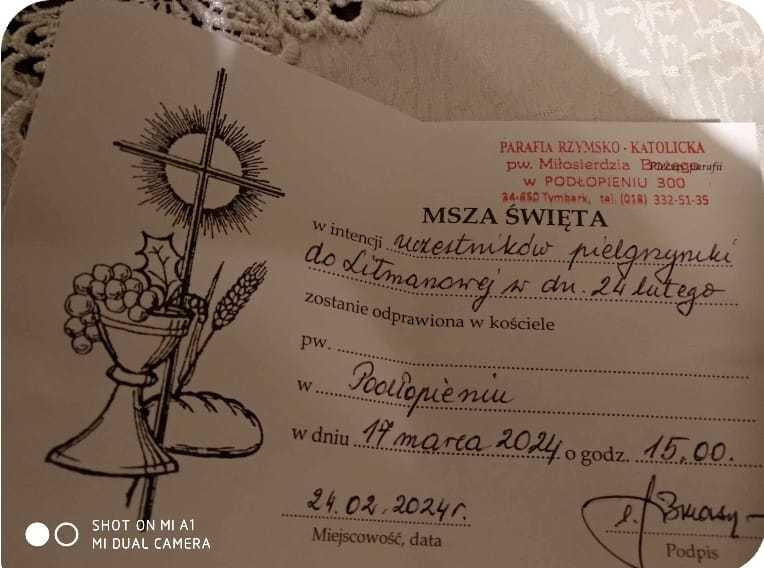 PARAFIA RZYMSKO - KATOLICKA
pw. Miłosierdzia Bożego
Pieczęć parafii
w PODŁOPIENIU 300
34-650 Tymbark, tel. (018) 332-51-35
MSZA ŚWIĘTA
w intencji uczestników pielgrzymki
do Litmanowej w dn. 24 lutego
zostanie odprawiona w kościele
pw.
w Podłopieniu
w dniu 17 marca 2024 o godz. 15.00.
24.02.2024r.
Miejscowość, data
Podpis
SHOT ON MI A1
MI DUAL CAMERA